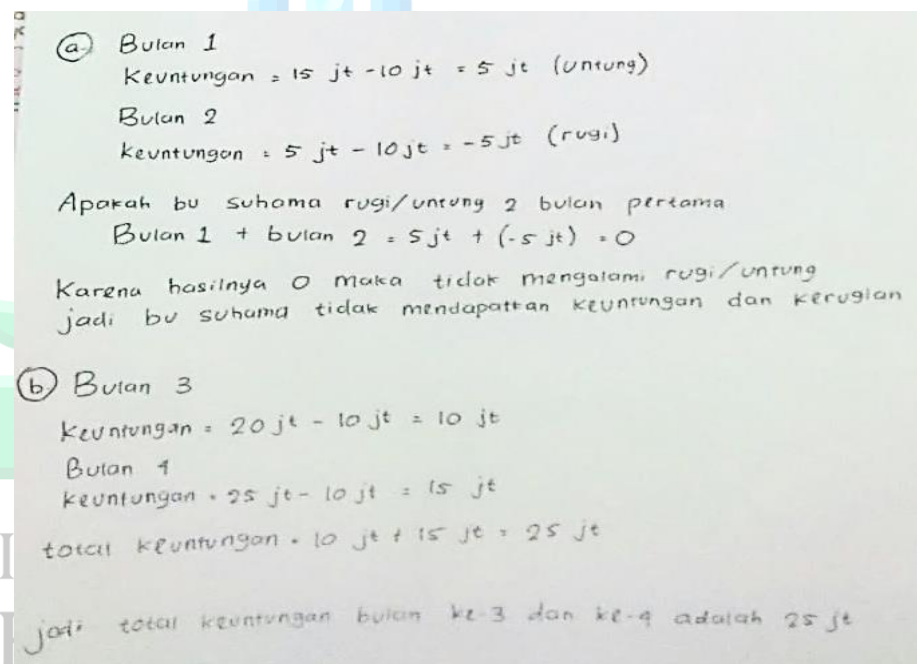 a. Bulan 1
Keuntungan = 15 jt - 10 jt = 5 jt (untung)
Bulan 2
Keuntungan = 5 jt - 10 jt = -5 jt (rugi)
Apakah bu suhama rugi/untung 2 bulan pertama
Bulan 1 + bulan 2 = 5 jt + (-5 jt) = 0
Karena hasilnya 0 maka tidak mengalami rugi/untung
jadi bu suhama tidak mendapatkan keuntungan dan kerugian
b. Bulan 3
Keuntungan = 20 jt - 10 jt = 10 jt
Bulan 4
Keuntungan = 25 jt - 10 jt = 15 jt
total keuntungan = 10 jt + 15 jt = 25 jt
jadi total keuntungan bulan ke-3 dan ke-4 adalah 25 jt